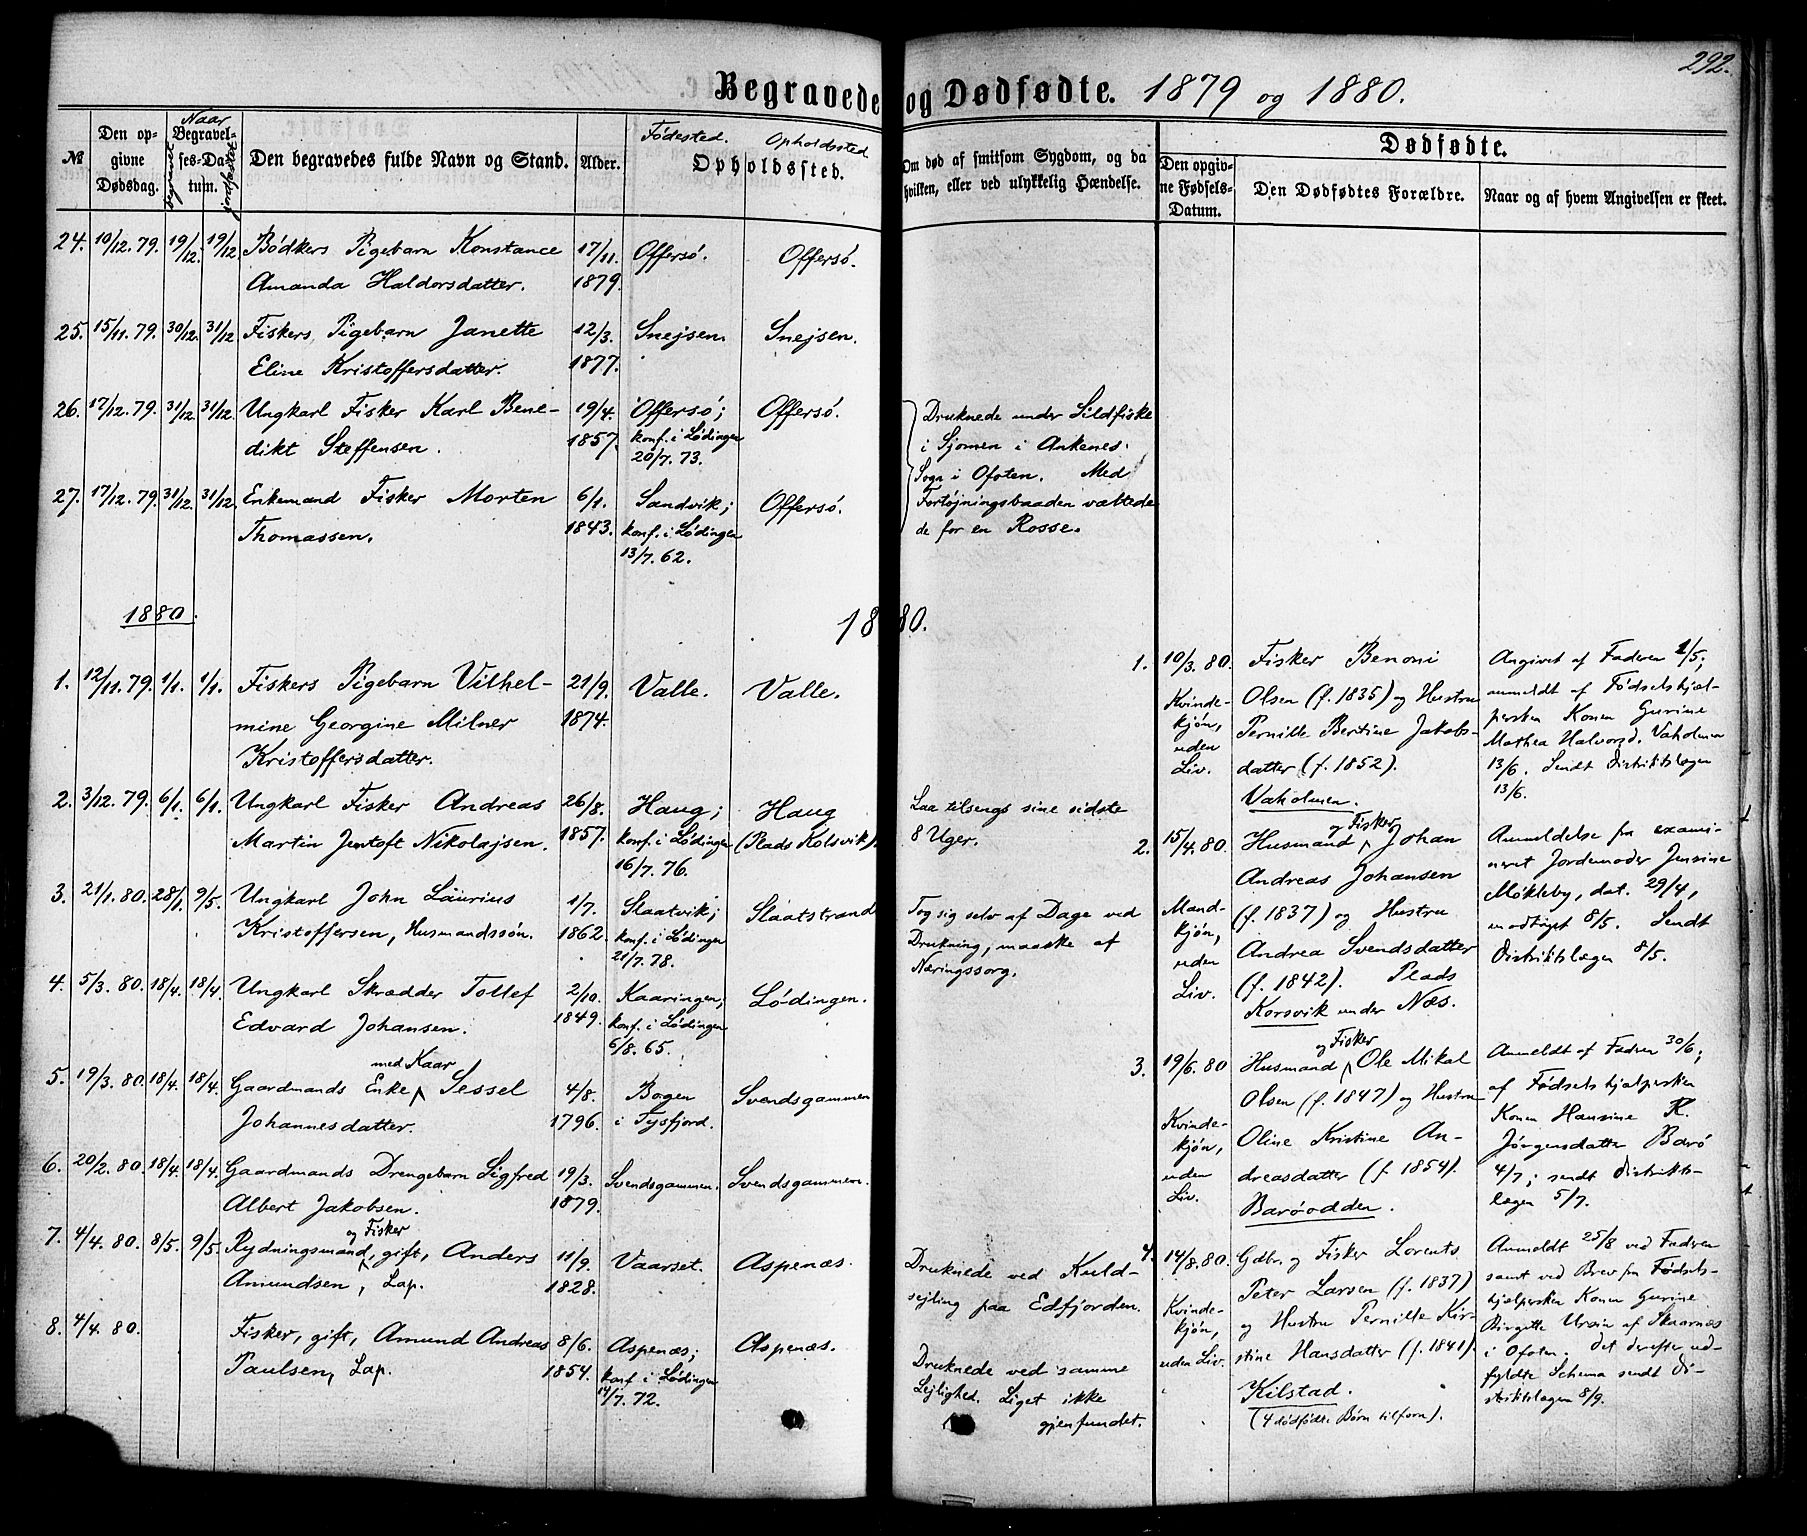 292.
Begravede og Dødfødte. 1879 og 1880.
№
Den opgivne Dødsdag.
Naar
Begravelses-Datum.
begravet
jordfæstet
Den begravedes fulde Navn og Stand.
Alder.
Fødested. Opholdssted
Opholdssted.
Om død af smitsom Sygdom, og da hvilken, eller ved ulykkelig Hændelse.
Dødfødte.
Den opgivne Fødsels-Datum.
Den Dødfødtes Forældre.
Naar og af hvem Angivelsen er skeet.
24. 10/12. 79. 19/12. 19/12. Bødkers Pigebarn Konstance 17/11. Offersø. Offersø.
Amanda Haldorsdatter. 1879.
25. 15/11. 79. 30/12. 31/12 Fiskers Pigebarn Janette 12/3. Snejsen. Snejsen.
Eline Kristoffersdatter. 1877.
26. 17/12. 79. 31/12. 31/12. Ungkarl Fisker Karl Bene- 19/4. Offersø; Offersø.
dikt Steffensen. 1857. konf. i Lødingen
20/7. 73.
Druknede under Sildfiske
i Sjomen i Ankenes
Sogn i Ofoten. Med
Fortøjningsbaaden væltede
de for en Rosse.
27. 17/12. 79. 31/12. 31/12. Enkemand Fisker Morten 6/1. Sandvik; Offersø.
Thomassen. 1843. konf. i Lødingen
13/7. 62.
1880. 1880.
1. 12/11. 79. 1/1. 1/1. Fiskers Pigebarn Vilhel- 21/9. Valle. Valle.
mine Georgine Milner 1874.
Kristoffersdatter.
2. 3/12. 79. 6/1. 6/1. Ungkarl Fisker Andreas 26/8. Haug; Haug
Martin Jentoft Nikolajsen. 1857. konf. i Lødingen (Plads Kolsvik).
16/7. 76.
Laa tilsengs sine sidste
8 Uger.
3. 21/1. 80. 28/1. 9/5. Ungkarl John Laurius 1/7. Slaatvik; Slaatstrand
Kristoffersen, Husmandssøn. 1862. konf. i Lødingen
21/7. 78.
Tog sig selv af Dage ved
Drukning, maaske af
Næringssorg.
4. 5/3. 80. 18/4. 18/4. Ungkarl Skrædder Tollef 2/10. Kaaringen, Lødingen.
Edvard Johansen. 1849. konf. i Lødingen
6/8. 65.
med Kaar
5. 19/3. 80. 18/4. 18/4. Gaardmands Enke Sessel 4/8. Bogen Svendsgammen
Johannesdatter. 1796. i Tysfjord.
6. 20/2. 80. 18/4. 18/4. Gaardmands Drengebarn Sigfred 19/3. Svendsgammen. Svendsgammen.
Albert Jakobsen. 1879.
og Fisker
7. 4/4. 80. 8/5. 9/5. Rydningsmand, gift, Anders 11/9. Vaarset. Aspenæs.
Amundsen, Lap. 1828.
Druknede ved Kuld-
sejling paa Edfjorden.
8. 4/4. 80. Fisker, gift, Amund Andreas 8/6. Aspenæs; Aspenæs.
Paulsen, Lap. 1854. konf. i Lødingen
14/7. 72.
Druknede ved samme
Lejlighed. Liget ikke
gjenfundet.
1. 10/3. 80. Kvinde-
kjøn,
uden
Liv.
Fisker Benoni
Olsen (f. 1835) og Hustru
Pernille Bertine Jakobs-
datter (f. 1852).
Vaholmen.
Angivet af Faderen 2/5;
anmeldt af Fødselshjæl-
persken Konen Gurine
Mathea Halvorsd. Vaholmen
13/6. Sendt Distriktslægen
13/6.
2. 15/4. 80. Mand-
kjøn,
uden
Liv.
og Fisker
Husmand Johan
Andreas Johansen
(f. 1837) og Hustru
Andrea Svendsdatter
(f. 1842). Plads
Korsvik under Næs.
Anmeldelse fra exami-
neret Jordemoder Jensine
Møkleby, dat. 29/4,
modtaget 8/5. Sendt
Distriktslægen 8/5.
3. 19/6. 80 Kvinde-
kjøn,
uden
Liv.
og Fisker
Husmand Ole Mikal
Olsen (f. 1847) og Hustru
Oline Kristine An-
dreasdatter (f. 1854).
Barøodden.
Anmeldt af Faderen 30/6;
af Fødselshjælpersken
Konen Hansine R.
Jørgensdatter Barø
4/7; sendt Distrikts-
lægen 5/7.
4. 14/8. 80. Kvinde-
kjøn,
uden Liv.
Gdbr. og Fisker Lorents
Peter Larsen (f. 1837)
og Hustru Pernille Kir-
stine Hansdatter (f. 1841).
Kilstad.
(4 dødfødte Børn tilforn).
Anmeldt 25/8 ved Faderen
samt ved Brev fra Fødsels-
hjælpersken Konen Gurine
Birgitte Ursin af Skarnæs
i Ofoten. Det derefter ud-
fyldte Schema sendt Di-
striktslægen 8/9.